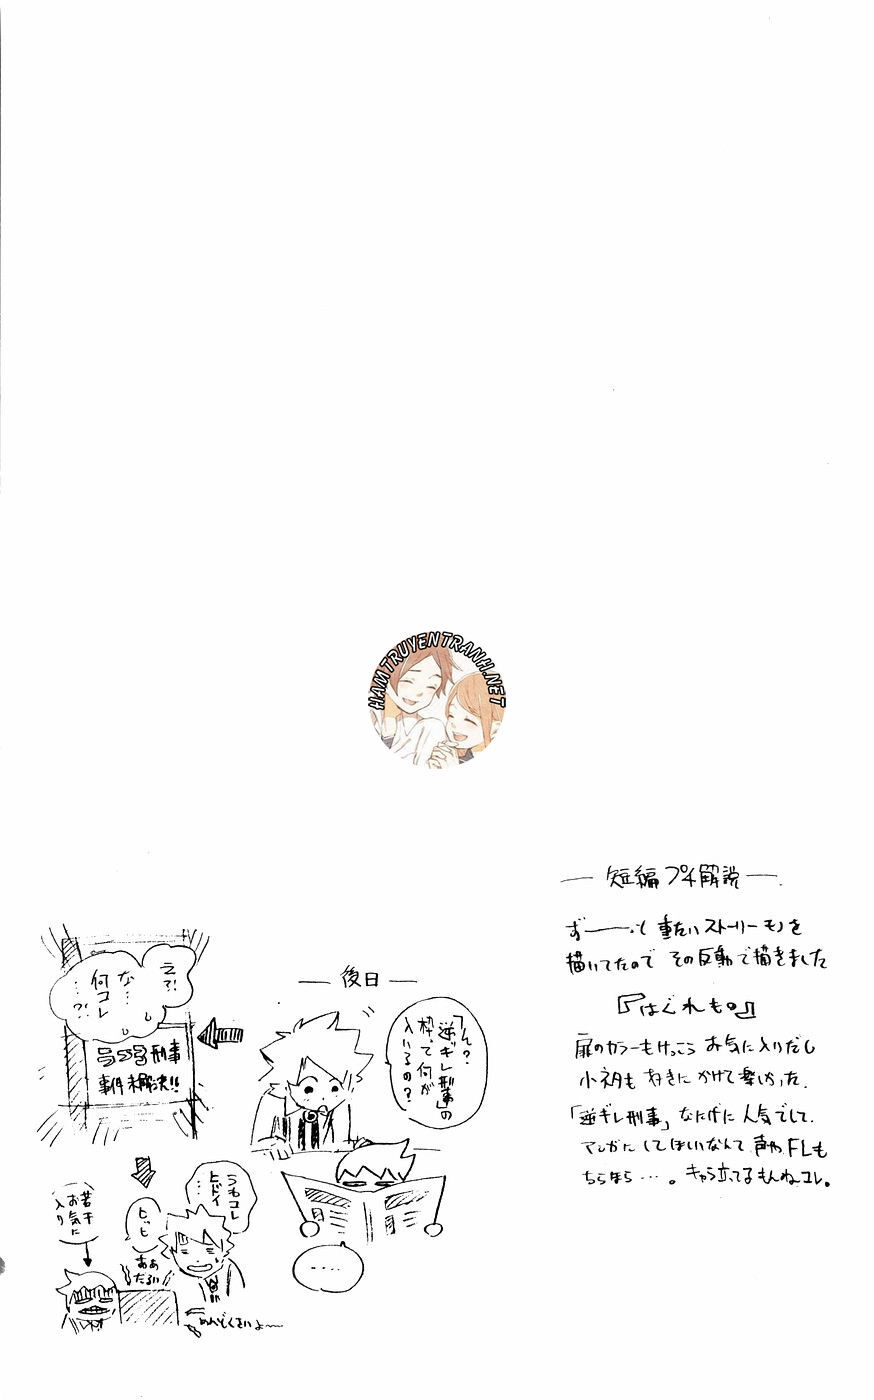 HAMTRUYENTRANH.NET
― 短編プチ解説 ―
ず――っと重たいストーリーモノを
描いてたので その反動で描きました
『はぐれも。』
扉のカラーもけっこう お気に入りだし
小ネタも 好きに かけて 楽しかった.
「逆ギレ刑事」なにげに 人気でして.
マンガに してほしいなんて 声や FLも
ちらほら…。キャラ立ってるもんねコレ。
― 後日 ―
「ん?
「逆ギレ刑事」の
枠って何が
入いるの?
.....
え?!
な…
何コレ
…?!
刑事
事件未解決!!
うわコレ
ヒドイ
…
ヒッヒ
ああ
だるい
若干
お気に
入り
めんどくさいよ〜